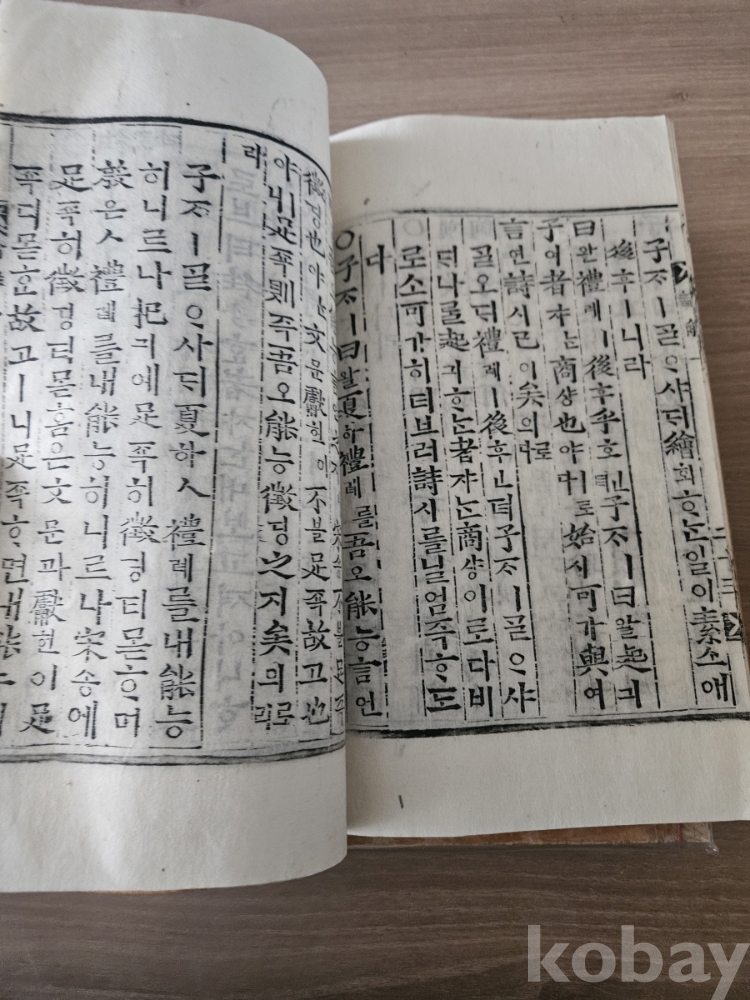 論 解 一
二十三
子ᄌᆞㅣᄀᆞᆯᄋᆞ샤ᄃᆡ繪회ᄒᆞᄂᆞᆫ일이素소애
後후ㅣ니라
曰왈禮례ㅣ後후乎호ㅣᆫ뎌子ᄌᆞㅣ曰왈起긔
予여者쟈ᄂᆞᆫ商샹也야ㅣ로다始시可가與여
言언詩시已이矣의로다
ᄀᆞᆯ오ᄃᆡ禮례ㅣ後후ㅣᆫ뎌子ᄌᆞㅣᄀᆞᆯᄋᆞ샤
ᄃᆡ나ᄅᆞᆯ起긔ᄒᆞᄂᆞᆫ者쟈ᄂᆞᆫ商샹이로다비
로소可가히더브러詩시를닐엄즉ᄒᆞ도
다
○子ᄌᆞㅣ曰왈夏하禮례를吾오能능言언
徵딩也야ᄂᆞᆫ文문獻헌이不블足족故고也
야ㅣ니足족則즉吾오能능徵딩之지矣의로
라
子ᄌᆞㅣᄀᆞᆯᄋᆞ샤ᄃᆡ夏하ㅅ禮례를내能능
히니르나杞긔예足족히徵딩티몯ᄒᆞ며
殷은ㅅ禮례를내能능히니르나宋송에
足족히徵딩티몯ᄒᆞᆷ은文문과獻헌이足
족디몯ᄒᆞᆫ故고ㅣ니足족ᄒᆞ면내能능
kobay